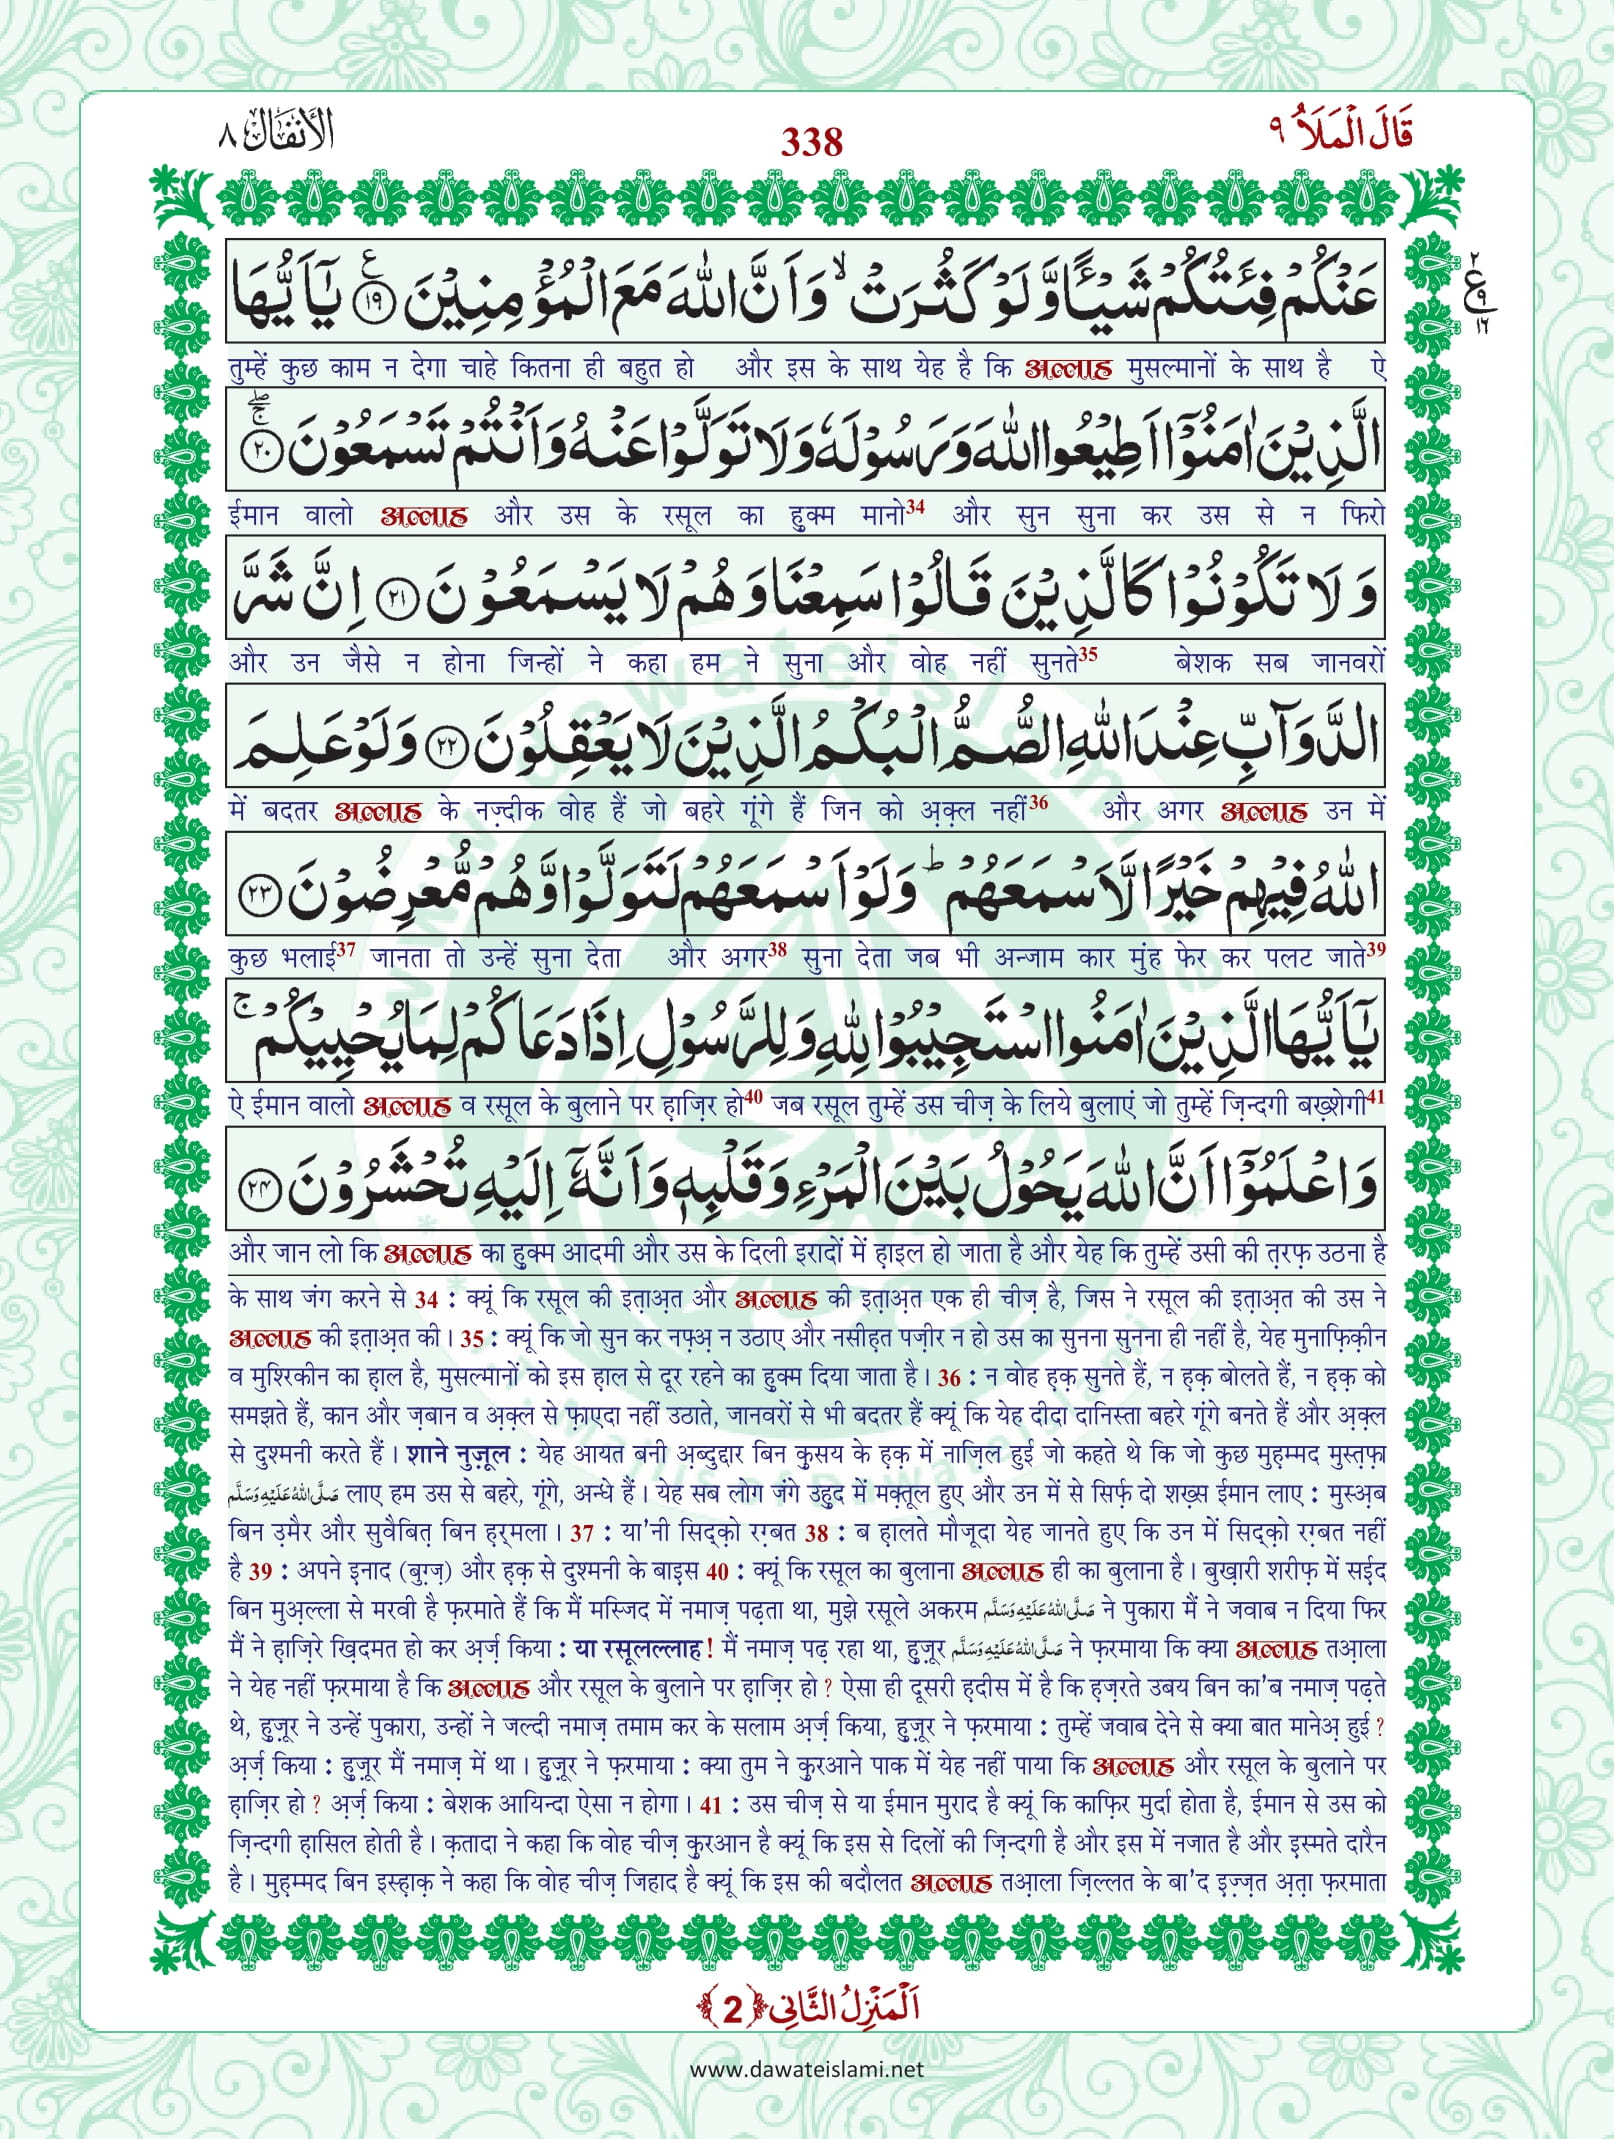 قَالَ الْمَلَاُ ٩
338
الْاَنْفَال ٨
عَنْكُمْ فِئَتُكُمْ شَيْـًٔا وَّلَوْ كَثُرَتْ ۙ وَاَنَّ اللّٰهَ مَعَ الْمُؤْمِنِيْنَ ﴿١٩﴾ ع يٰۤاَيُّهَا
٢ ع ٩ ١٦
तुम्हें कुछ काम न देगा चाहे कितना ही बहुत हो और इस के साथ येह है कि अल्लाह मुसल्मानों के साथ है ऐ
الَّذِيْنَ اٰمَنُوْۤا اَطِيْعُوا اللّٰهَ وَرَسُوْلَهٗ وَلَا تَوَلَّوْا عَنْهُ وَاَنْتُمْ تَسْمَعُوْنَ ﴿٢٠﴾ ۖۚ
ईमान वालो अल्लाह और उस के रसूल का हुक्म मानो34 और सुन सुना कर उस से न फिरो
وَلَا تَكُوْنُوْا كَالَّذِيْنَ قَالُوْا سَمِعْنَا وَهُمْ لَا يَسْمَعُوْنَ ﴿٢١﴾ اِنَّ شَرَّ
और उन जैसे न होना जिन्हों ने कहा हम ने सुना और वोह नहीं सुनते35 बेशक सब जानवरों
الدَّوَآبِّ عِنْدَ اللّٰهِ الصُّمُّ الْبُكْمُ الَّذِيْنَ لَا يَعْقِلُوْنَ ﴿٢٢﴾ وَلَوْ عَلِمَ
में बदतर अल्लाह के नज़्दीक वोह हैं जो बहरे गूंगे हैं जिन को अ़क़्ल नहीं36 और अगर अल्लाह उन में
اللّٰهُ فِيْهِمْ خَيْرًا لَّاَسْمَعَهُمْ ؕ وَلَوْ اَسْمَعَهُمْ لَتَوَلَّوْا وَّهُمْ مُّعْرِضُوْنَ ﴿٢٣﴾
कुछ भलाई37 जानता तो उन्हें सुना देता और अगर38 सुना देता जब भी अन्जाम कार मुंह फेर कर पलट जाते39
يٰۤاَيُّهَا الَّذِيْنَ اٰمَنُوا اسْتَجِيْبُوْا لِلّٰهِ وَلِلرَّسُوْلِ اِذَا دَعَاكُمْ لِمَا يُحْيِيْكُمْ ۚ
ऐ ईमान वालो अल्लाह व रसूल के बुलाने पर ह़ाज़िर हो40 जब रसूल तुम्हें उस चीज़ के लिये बुलाएं जो तुम्हें ज़िन्दगी बख़्शेगी41
وَاعْلَمُوْۤا اَنَّ اللّٰهَ يَحُوْلُ بَيْنَ الْمَرْءِ وَقَلْبِهٖ وَاَنَّهٗۤ اِلَيْهِ تُحْشَرُوْنَ ﴿٢٤﴾
और जान लो कि अल्लाह का हुक्म आदमी और उस के दिली इरादों में ह़ाइल हो जाता है और येह कि तुम्हें उसी की त़रफ़ उठना है
के साथ जंग करने से 34 : क्यूं कि रसूल की इत़ाअ़त और अल्लाह की इत़ाअ़त एक ही चीज़ है, जिस ने रसूल की इत़ाअ़त की उस ने
अल्लाह की इत़ाअ़त की। 35 : क्यूं कि जो सुन कर नफ़्अ़ न उठाए और नसीह़त पज़ीर न हो उस का सुनना सुनना ही नहीं है, येह मुनाफ़िक़ीन
व मुश्रिकीन का ह़ाल है, मुसल्मानों को इस ह़ाल से दूर रहने का हुक्म दिया जाता है। 36 : न वोह ह़क़ सुनते हैं, न ह़क़ बोलते हैं, न ह़क़ को
समझते हैं, कान और ज़बान व अ़क़्ल से फ़ाएदा नहीं उठाते, जानवरों से भी बदतर हैं क्यूं कि येह दीदा दानिस्ता बहरे गूंगे बनते हैं और अ़क़्ल
से दुश्मनी करते हैं। शाने नुज़ूल : येह आयत बनी अ़ब्दुद्दार बिन कुसय के ह़क़ में नाज़िल हुई जो कहते थे कि जो कुछ मुह़म्मद मुस्त़फ़ा
صَلَّى اللّٰهُ عَلَيْهِ وَسَلَّم लाए हम उस से बहरे, गूंगे, अन्धे हैं। येह सब लोग जंगे उह़ुद में मक़्तूल हुए और उन में से सिर्फ़ दो शख़्स ईमान लाए : मुस्अ़ब
बिन उ़मैर और सुवैबित़ बिन ह़र्मला। 37 : या'नी सिद्क़ो रग़्बत 38 : ब ह़ालते मौजूदा येह जानते हुए कि उन में सिद्क़ो रग़्बत नहीं
है 39 : अपने इनाद (बुग़्ज़) और ह़क़ से दुश्मनी के बाइस 40 : क्यूं कि रसूल का बुलाना अल्लाह ही का बुलाना है। बुख़ारी शरीफ़ में सई़द
बिन मुअ़ल्ला से मरवी है फ़रमाते हैं कि मैं मस्जिद में नमाज़ पढ़ता था, मुझे रसूले अकरम صَلَّى اللّٰهُ عَلَيْهِ وَسَلَّم ने पुकारा मैं ने जवाब न दिया फिर
मैं ने ह़ाज़िरे ख़िदमत हो कर अ़र्ज़ किया : या रसूलल्लाह! मैं नमाज़ पढ़ रहा था, हुज़ूर صَلَّى اللّٰهُ عَلَيْهِ وَسَلَّم ने फ़रमाया कि क्या अल्लाह तआ़ला
ने येह नहीं फ़रमाया है कि अल्लाह और रसूल के बुलाने पर ह़ाज़िर हो? ऐसा ही दूसरी ह़दीस में है कि ह़ज़रते उबय बिन का'ब नमाज़ पढ़ते
थे, हुज़ूर ने उन्हें पुकारा, उन्हों ने जल्दी नमाज़ तमाम कर के सलाम अ़र्ज़ किया, हुज़ूर ने फ़रमाया : तुम्हें जवाब देने से क्या बात मानेअ़ हुई?
अ़र्ज़ किया : हुज़ूर मैं नमाज़ में था। हुज़ूर ने फ़रमाया : क्या तुम ने कुरआने पाक में येह नहीं पाया कि अल्लाह और रसूल के बुलाने पर
ह़ाज़िर हो? अ़र्ज़ किया : बेशक आयिन्दा ऐसा न होगा। 41 : उस चीज़ से या ईमान मुराद है क्यूं कि काफ़िर मुर्दा होता है, ईमान से उस को
ज़िन्दगी ह़ासिल होती है। क़तादा ने कहा कि वोह चीज़ कुरआन है क्यूं कि इस से दिलों की ज़िन्दगी है और इस में नजात है और इस्मते दारैन
है। मुह़म्मद बिन इस्ह़ाक़ ने कहा कि वोह चीज़ जिहाद है क्यूं कि इस की बदौलत अल्लाह तआ़ला ज़िल्लत के बा'द इ़ज़्ज़त अ़त़ा फ़रमाता
اَلْمَنْزِلُ الثَّانِي ﴿2﴾
www.dawateislami.net